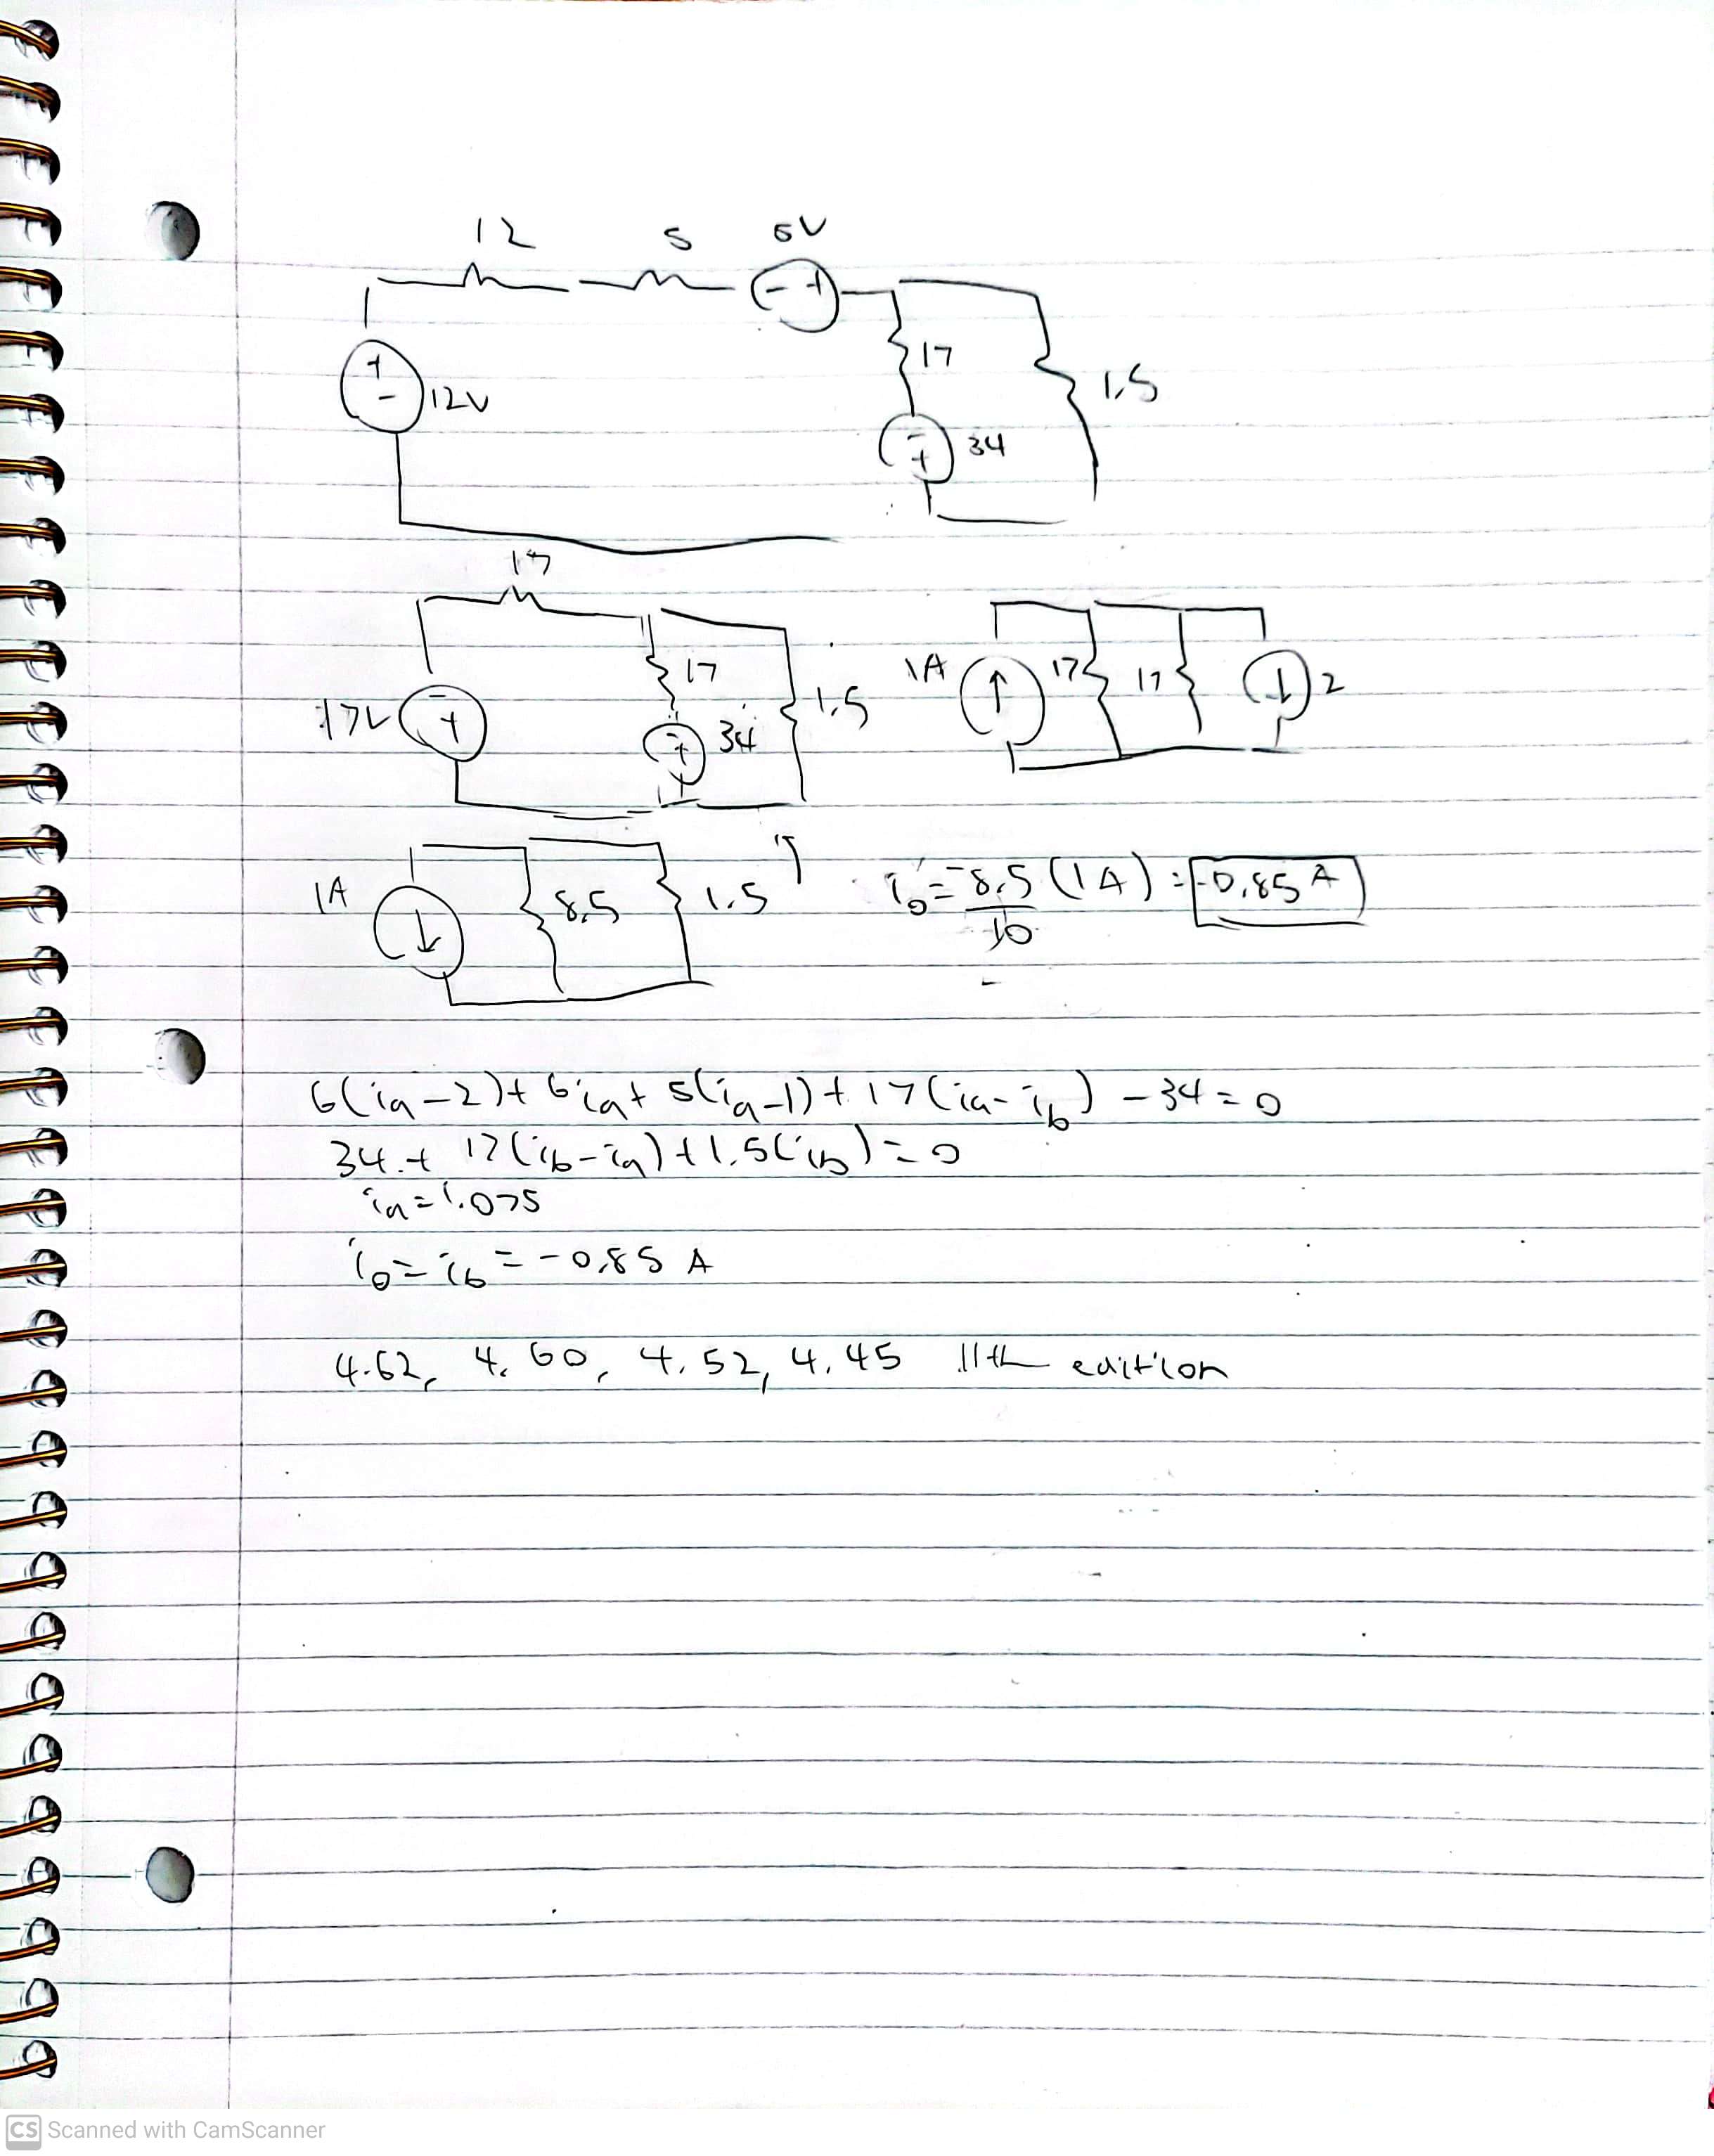 12 5 5V
+ - 12V - + 17 1.5
- + 34
17
17V - + 17 - + 34 1.5 1A 17 17 2
1A 8.5 1.5 i₀ = -8.5/10 (1A) = -0.85 A
6(ia-2)+6ia+5(ia-1)+17(ia-ib)-34=0
34+17(ib-ia)+1.5(ib)=0
ia=1.075
i₀=ib=-0.85 A
4.62, 4.60, 4.52, 4.45 11th edition
CS Scanned with CamScanner